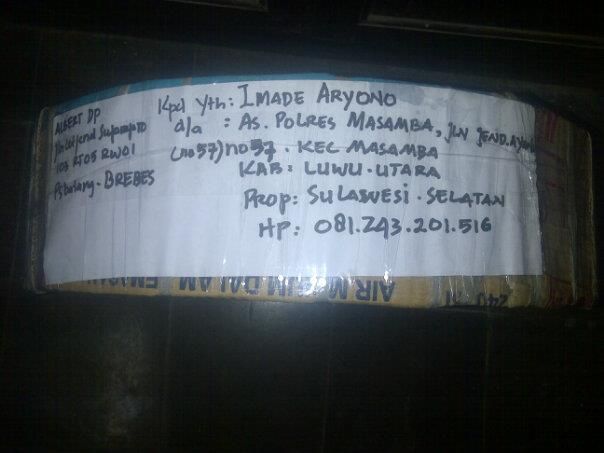 ALBERT DP
Jln Letjend Suprapto
103 RT05 RW01
BREBES
Kpd Yth: IMADE ARYONO
d/a : AS. POLRES MASAMBA, JLN JEND.
(no 57) no 57 . KEC MASAMBA
KAB: LUWU-UTARA
PROP: SULASWESI-SELATAN
HP: 081.243.201.516
AIR M UM DALAM
240